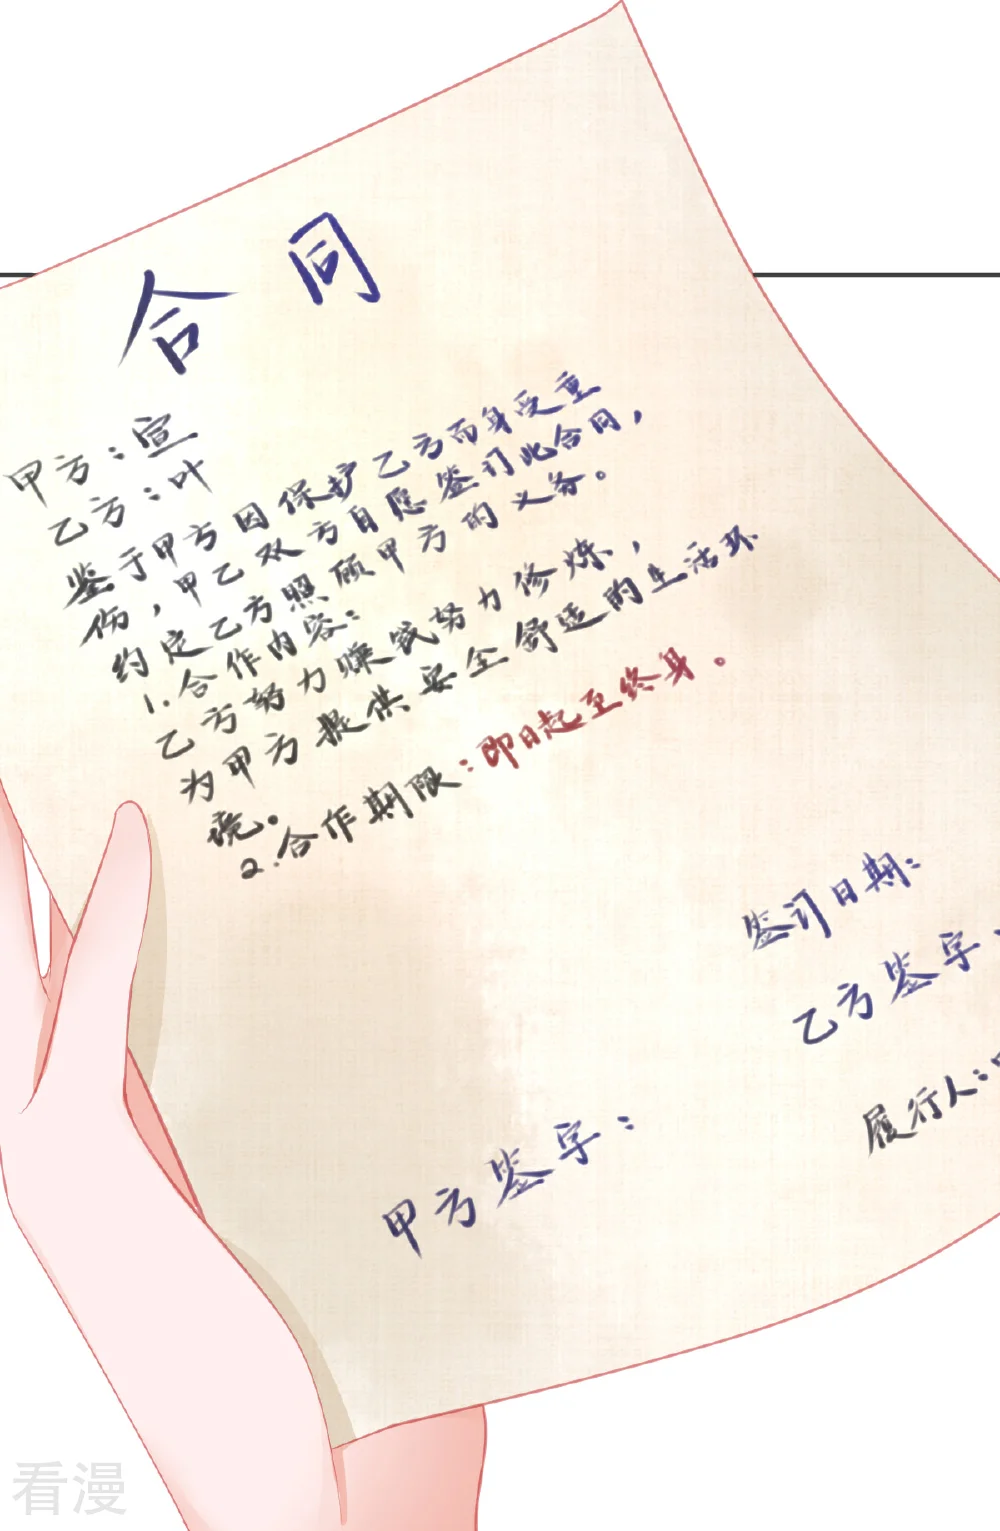 合同
甲方：宣
乙方：叶
鉴于甲方因保护乙方而身受重
伤，甲乙双方自愿签订此合同，
约定乙方照顾甲方的义务。
1.合作内容：
乙方努力赚钱努力修炼，
为甲方提供安全舒适的生活环
境。
2.合作期限：即日起至终身。
签订日期：
乙方签字：
履行人：
甲方签字：
看漫